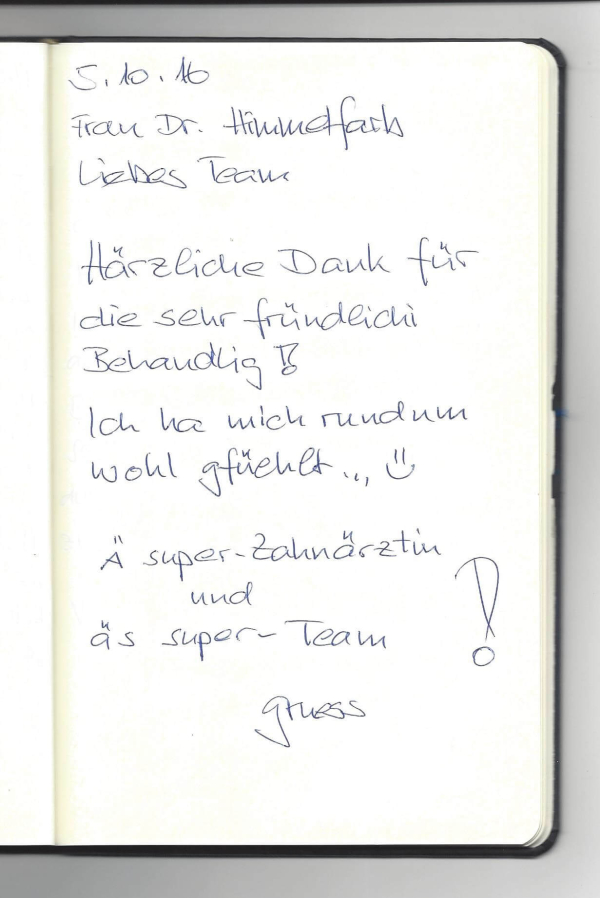 5.10.16
Frau Dr. Himmelfarb
Liebes Team
Härzliche Dank für
die sehr fründlichi
Behandlig !
Ich ha mich rundum
wohl gfüehlt... ☺
Ä super-Zahnärztin
und
äs super-Team !
gruess